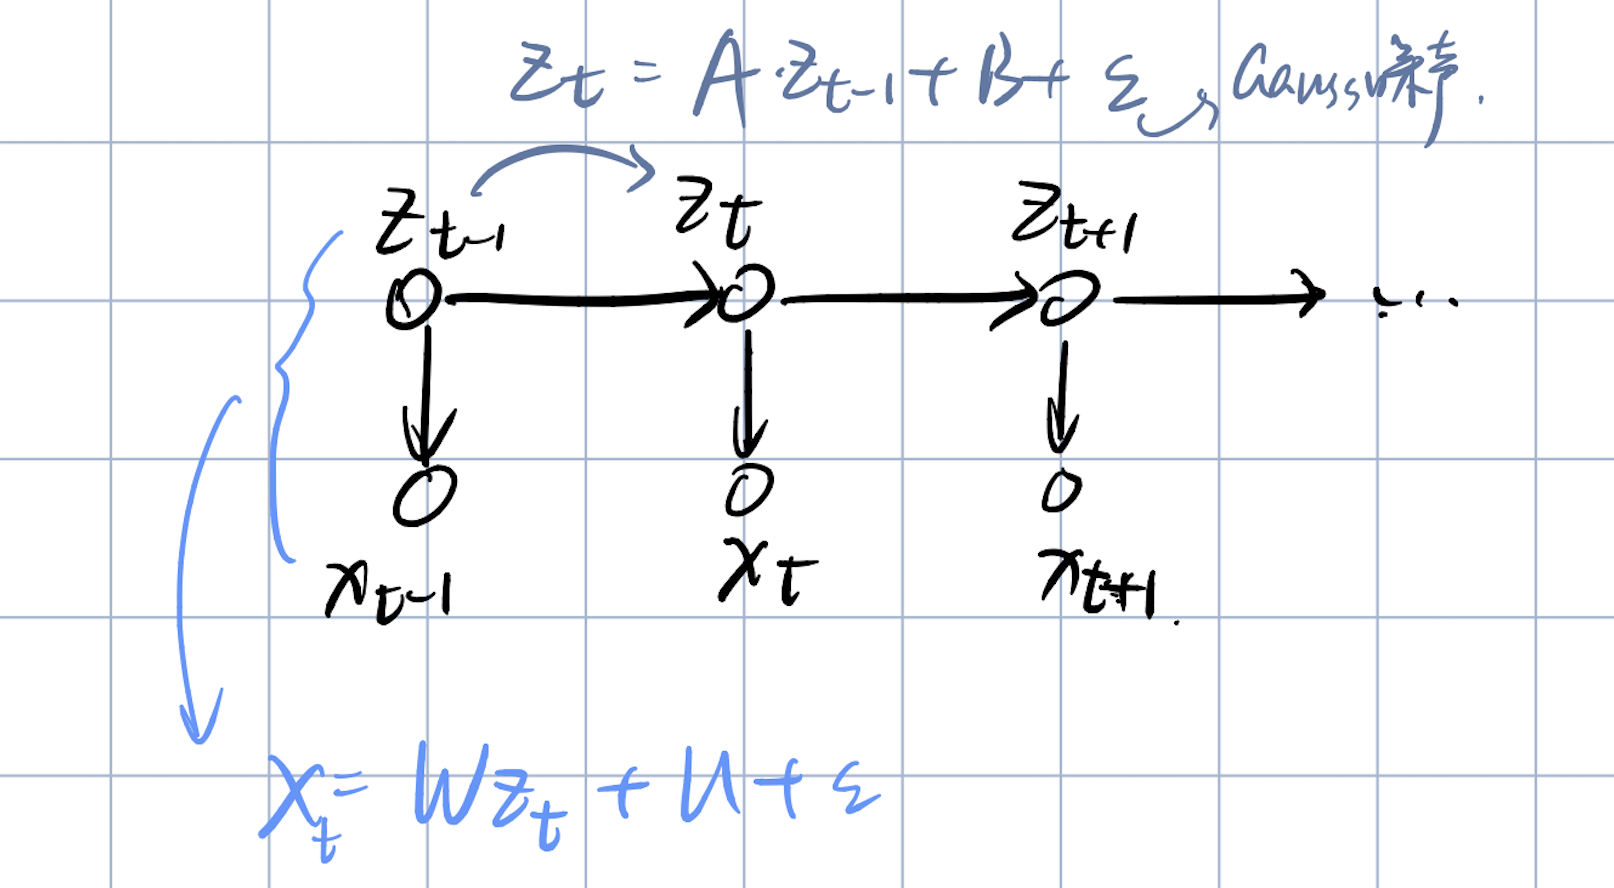 Zt = A·Zt-1 + B + ε, Gauss噪声.
Zt-1 Zt Zt+1
...
xt-1 xt xt+1.
Xt = WZt + U + ε